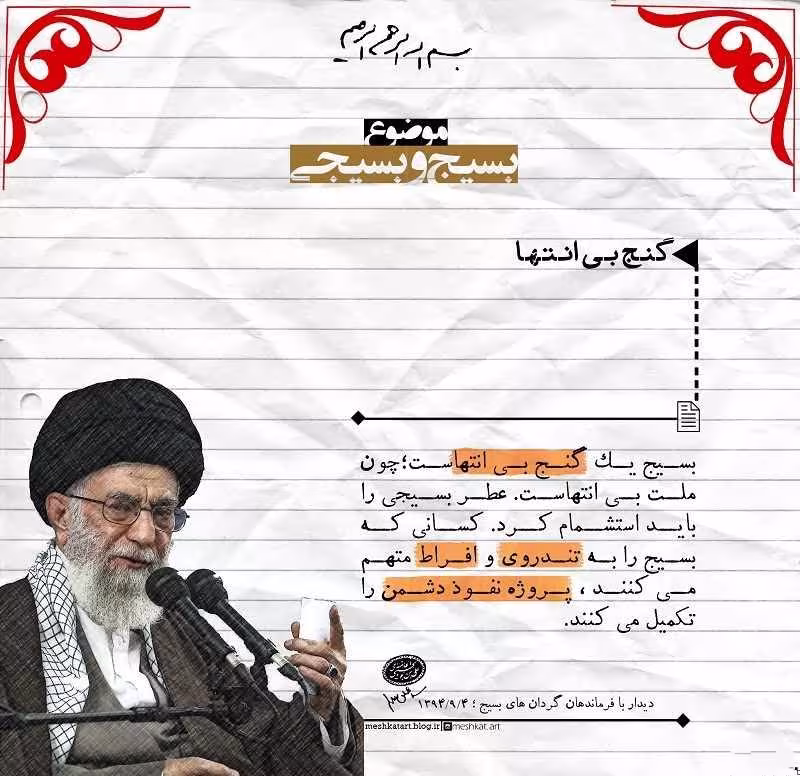 بسم الله الرحمن الرحیم
موضوع
بسیج و بسیجی
گنج بی انتها
بسیج یک گنج بی انتهاست؛چون
ملت بی انتهاست. عطر بسیجی را
باید استشمام کرد. کسانی که
بسیج را به تندروی و افراط متهم
می کنند ، پروژه نفوذ دشمن را
تکمیل می کنند.
دیدار با فرماندهان گردان های بسیج ؛ ۱۳۹۴/۹/۴
meshkatart.blog.ir meshkat.art